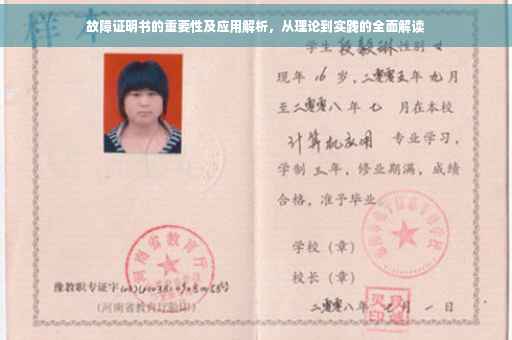 故障证明书的重要性及应用解析，从理论到实践的全面解读
样本
学生 段毅琳 性别 女
现年 16 岁，二零零五年 九月
至二零零八年 七 月在本校
计算机应用 专业学习，
学制 三 年，修业期满，成绩
合格，准予毕业。
学校（章）
校长（章）
河南省教育厅
豫教职专证字
（河南省教育厅验印）
二零零八年 七 月 一 日